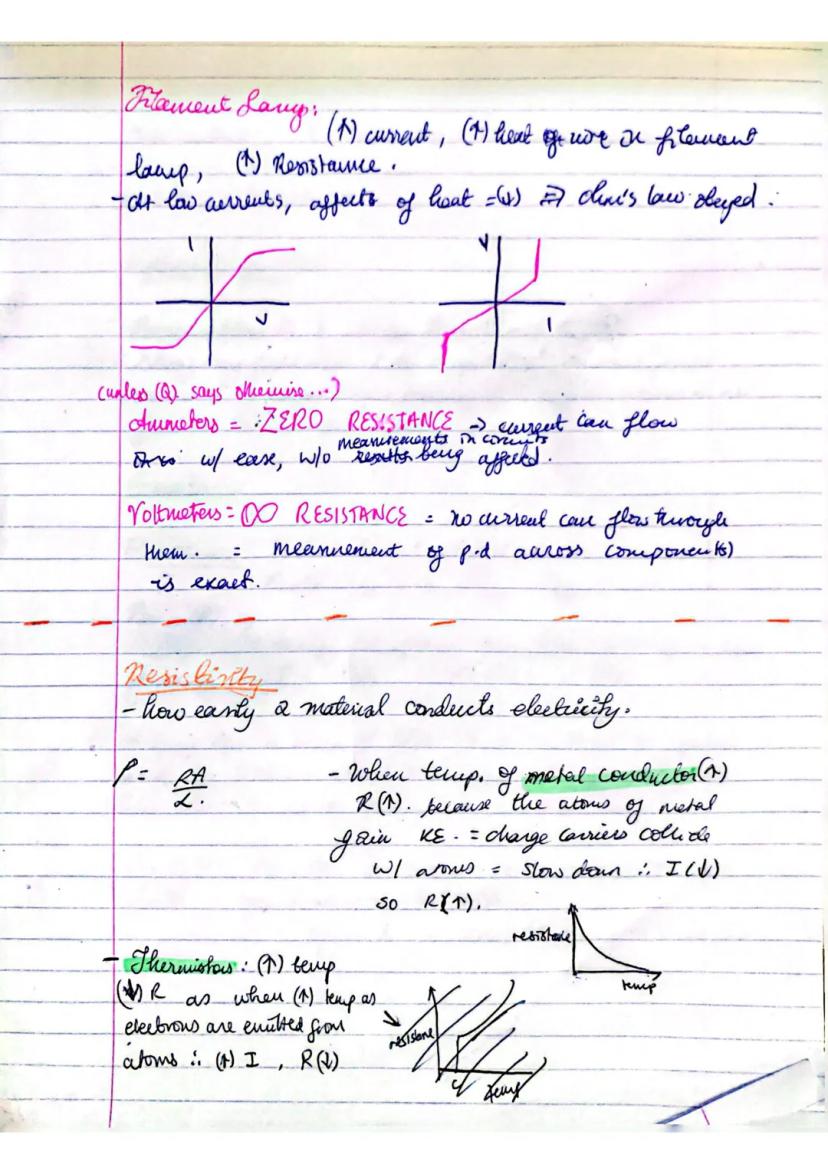 Filament Lamp:
(↑) current, (↑) heat of wire in filament
lamp, (↑) Resistance.
- At low currents, affects of heat = (↓) ⇒ ohm's law obeyed.
I
V
V
I
(unless (Q) says otherwise...)
Ammeters = ZERO RESISTANCE → current can flow
measurements in circuits
w/ ease, w/o being affected.
Voltmeters = ∞ RESISTANCE = no current can flow through
them. = measurement of p.d across component(s)
is exact.
Resistivity
- how easily a material conducts electricity.
ρ = RA
L.
- When temp. of metal conductor (↑)
R(↑). because the atoms of metal
gain KE. = charge carriers collide
w/ atoms = slow down ∴ I(↓)
so R(↑).
resistance
temp
- Thermistors: (↑) temp
(↓) R as when (↑) temp as
electrons are emitted from
atoms ∴ (↑) I, R(↓)
resistane
temp